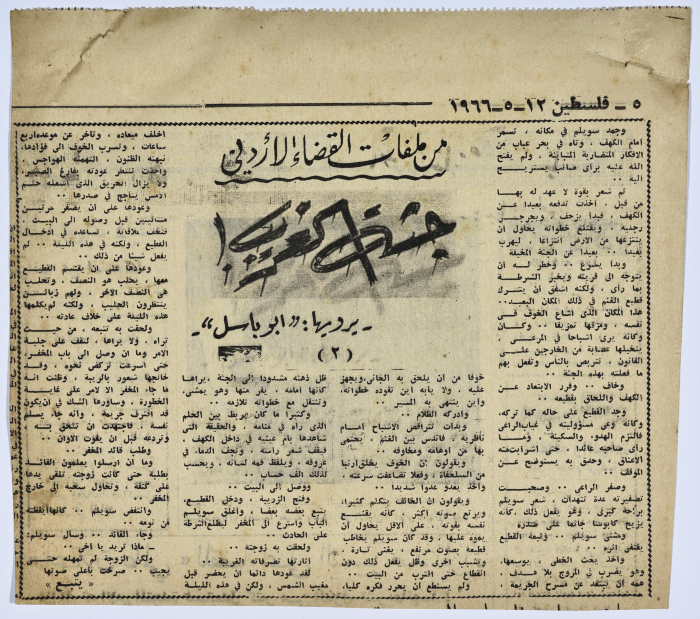 ٥ ـ فلسطين ١٢ـ٥ـ١٩٦٦
من ملفات القضاء الأردني
جثة الغريب !
ـ يرويها : « ابو باسل » ـ
( ٢ )
وجمد سويلم في مكانه ، تسمر
أمام الكهف ، وتاه في بحر عباب من
الافكار المتضاربة المتباينة ، ولم يفتح
الله عليه برأي صائب يستريح
اليه ..
ثم شعر بقوة لا عهد له بها
من قبل ، أخذت تدفعه بعيدا عن
الكهف ، فبدا يزحف ، ويجرجر
رجليه ، ويقتلع خطواته يحاول ان
ينتزعها من الارض انتزاعا ، ليهرب
بعيدا .. بعيدا عن الجثة المخيفة
وبدا يسرع .. وخطر له ان
يتوجه الى قريته ويخبر الشرطة
بما رأى ، ولكنه اشفق ان يترك
قطيع الغنم في ذلك المكان البعيد..
هذا المكان الذي اشاع الخوف في
نفسه ، ومزقها تمزيقا .. وكان
وكانه يرى اشباحا في المرعى ،
يتخيلها عصابة من الخارجين على
القانون ، تتربص بالناس وتفعل بهم
ما فعلته بهذه الجثة ..
وخاف .. وقرر الابتعاد عن
الكهف واللحاق بقطيعه ..
وجد القطيع على حاله كما تركه،
وكانه وعى مسؤوليته في غياب الراعي
فالتزم الهدوء والسكينة ، وما
رأى صاحبه عائدا ، حتى اشرأبت منه
الاعناق ، وحدق به يستوضح عن
الامر ..
وصفر الراعي .. وصحبت
تصفيرته عدة تنهدات ، شعر سويلم
براحة كبرى ، وهو يفعل ذلك ،كانه
يزيح كابوسا جاثما على صدره
ومشى سويلم .. والقطيع
يقتفي اثره ..
وأخذ يحث الخطى ، يوسعها،
وهو يضرب في المروج بلا هدف ،
همه ان يبتعد عن مسرح الجريمة ،
خوفا من ان يلحق به الجاني ويجهز
عليه ، ولا يابه اين تقوده خطواته،
واين ينتهي به المسير ..
وادركه الظلام ..
وبدأت تتراقص الاشباح امام
ناظريه ، فاندس بين الغنم ، يحتمي
بها من اوهامه ومخاوفه ..
ويقولون ان الخوف يخلق ارنبا
من السلحفاة ، وفعلا تضاعفت سرعته ،
وأخذ يعدو عدوا شديدا ..
ويقولون ان الخائف يتكلم كثيرا،
ويرتفع صوته اكثر ، كانه يقنع
نفسه بقوته ، على الاقل يحاول ان
يموه عليها ، وقد كان سويلم يخاطب
قطيعه بصوت مرتفع ، يغني تارة ،
ويشبب اخرى وظل يفعل ذلك دون
انقطاع حتى اقترب من البيت ..
ولم يستطع ان يحرر فكره كليا،
ظل ذهنه مشدودا الى الجثة ،يراها
كانها امامه ، يفر منها وهو يمشي،
وتنتقل مع خطواته تلازمه ..
وكثيرا ما كان يربط بين الحلم
الذي رآه في منامه ، والحقيقة التي
شاهدها بام عينيه في داخل الكهف ،
فيقف شعر راسه ، وتجف الدماء في
عروقه ، ويلفظ فمه لسانه ، ويحسب
لذلك الف حساب ..
ووصل الى البيت ..
وفتح الزريبة .. ودخل القطيع،
يتبع بعضه بعضا ، واغلق سويلم
الباب واسرع الى المخفر ليطلع الشرطة
على الحادث ..
ولحقت به زوجته ..
اثارتها تصرفاته الغريبة ..
لقد عودها دائما ان يحضر قبل
مغيب الشمس ، ولكن في هذه الليلة
اخلف ميعاده ، وتاخر عن موعده اربع
ساعات ، وتسرب الخوف الى فؤادها،
نهبته الظنون ، التهمته الهواجس ،
واخذت تنتظر عودته بفارغ الصبر،
ولا يزال الحريق الذي اشعله حلم
الامس يتاجج في صدرها ..
وعودها على ان يصفر مرتين
متتاليتين قبل وصوله الى البيت ،
فتخف لملاقاته ، تساعده في ادخال
القطيع ، ولكنه في هذه الليلة .. لم
يفعل شيئا من ذلك ..
وعودها على ان يقتسم القطيع
معها ، يحلب هو النصف ، وتحلب
هي النصف الآخر ، ولهم زبائن
ينتظرون الحليب ، ولكنه لم يكلمها
هذه الليلة على خلاف عادته ..
ولحقت به تتبعه ، من حيث
تراه ، ولا يراها ، لتقف على جلية
الامر وما ان وصل الى باب المخفر،
حتى اسرعت تركض نحوه ، وقد
خالجها شعور بالريبة ، وظنت انه
ما جاء المخفر الا لامر على غاية
الخطورة ، وساورها الشك في ان يكون
قد اقترف جريمة ، وانه جاء يسلم
نفسه ، فاجتهدت ان تلحق به ،
وتردعه قبل ان يفوت الاوان ..
وطلب قائد المخفر ..
وما ان ارسلوا يعلمون القائد
بطلبه حتى كانت زوجته تلقي بيدها
على كتفه ، وتحاول سحبه الى خارج
المخفر ..
وانتفض سويلم .. كانها ايقظته
من نومه ..
وجاء القائد .. وسال سويلم:
ـ ماذا تريد يا اخي ..
ولكن الزوجة لم تمهله حتى
يجيب .. صرخت باعلى صوتها
« يتبع »